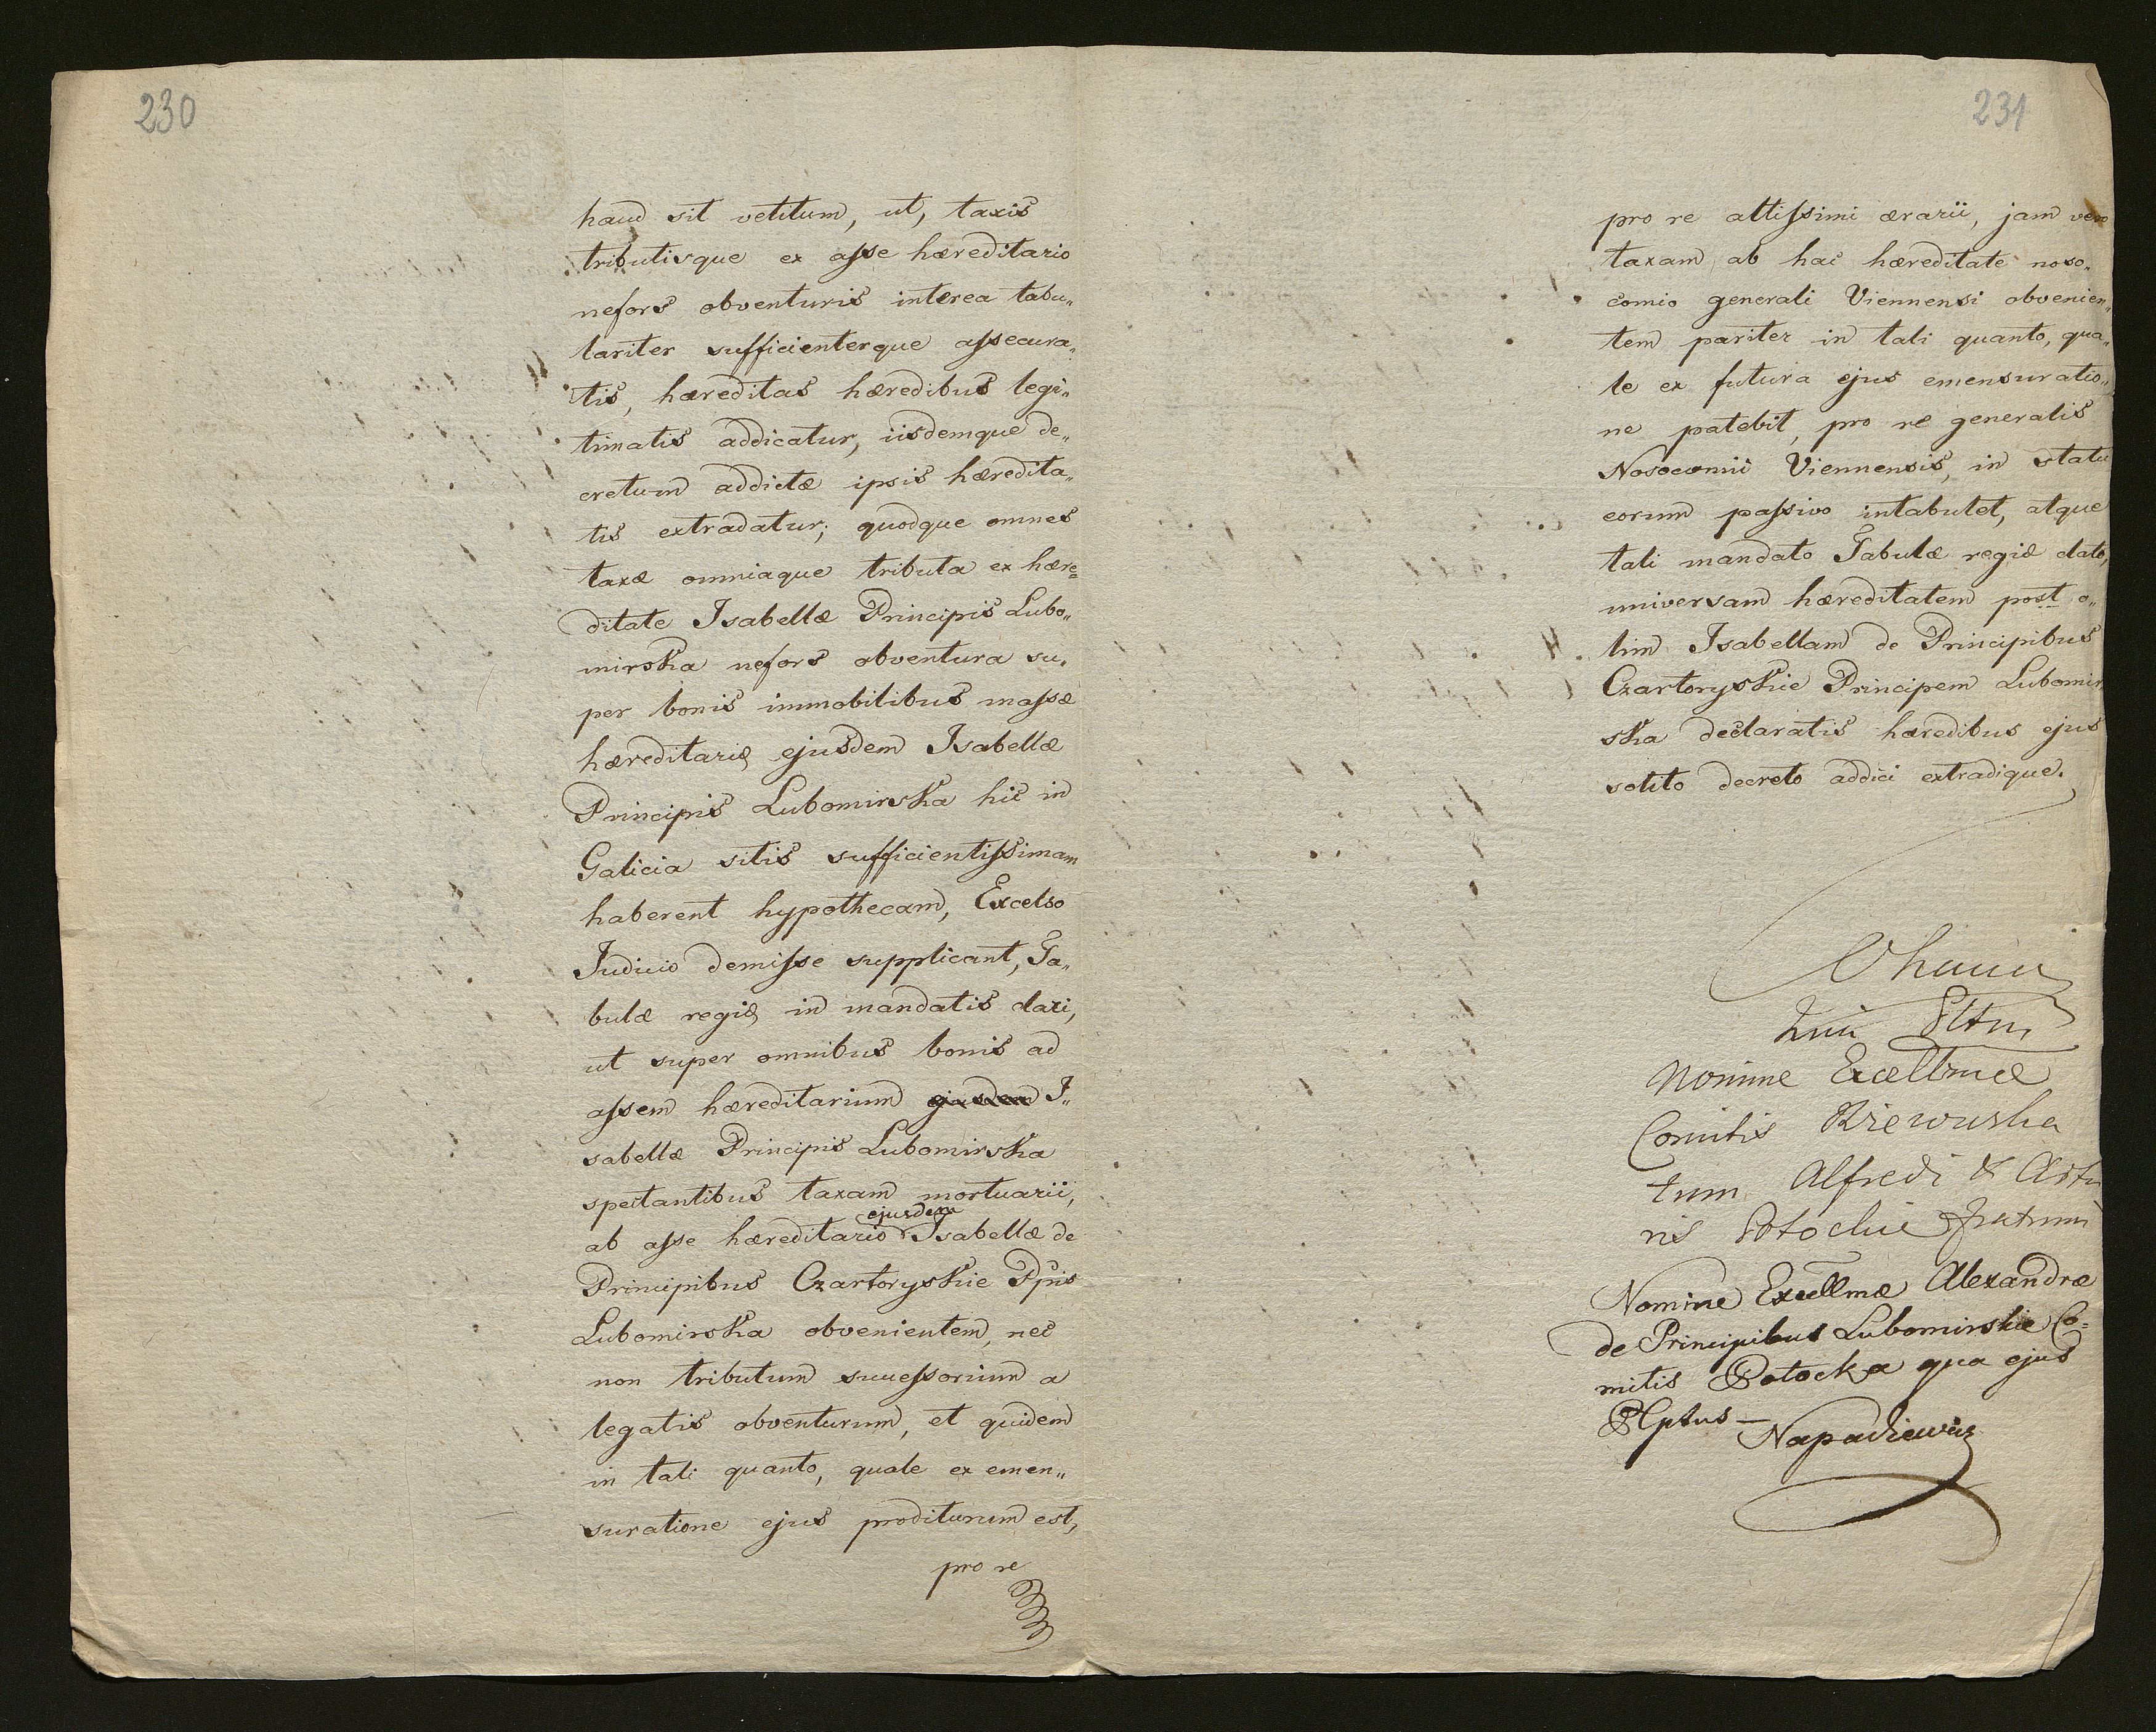 230
haud sit vetitum, ut, taxis
tributisque ex asse hæreditario
nefors obventuris interea tabu„
lariter sufficienterque assecura„
tis, hæreditas hæredibus legi„
timatis addicatur, iisdemque de„
cretum addictæ ipsis hæredita„
tis extradatur; quodque omnes
taxæ omniaque tributa ex hære„
ditate Isabellæ Principis Lubo„
mirska nefors obventura su„
per bonis immobilibus massæ
hæreditariæ ejusdem Isabellæ
Principis Lubomirska hic in
Galicia sitis sufficientissimam
haberent hypothecam, Excelso
Judicio demisse supplicant, Ta„
bulæ regiæ in mandatis dari,
ut super omnibus bonis ad
assem hæreditarium ejusdem I„
sabellæ Principis Lubomirska
spectantibus taxam mortuarii,
ab asse hæreditario ejusdem Isabellæ de
Principibus Czartoryskie Ppis
Lubomirska obvenientem, nec
non tributum successorium a
legatis obventurum, et quidem
in tali quanto, quale ex emen„
suratione ejus proditurum est,
pro re
231
pro re altissimi ærarii, jam vero
taxam ab hac hæreditate noso„
comio generali Viennensi obvenien„
tem pariter in tali quanto, qua„
le ex futura ejus emensuratio„
ne patebit, pro re generalis
Nosocomii Viennensis, in statu
eorum passivo intabulet, atque
tali mandato Tabulæ regiæ dato,
universam hæreditatem post o„
lim Isabellam de Principibus
Czartoryskie Principem Lubomir
ska declaratis hæredibus ejus
solito decreto addici extradique.
Nomine Excellmæ
Comitis Rzewuska
tum Alfredi & Artu
ris Potockie fratrum
Nomine Excellmæ Alexandræ
de Principibus Lubomirskie Co„
mitis Potocka qua ejus
Plptus —
Napadiewicz